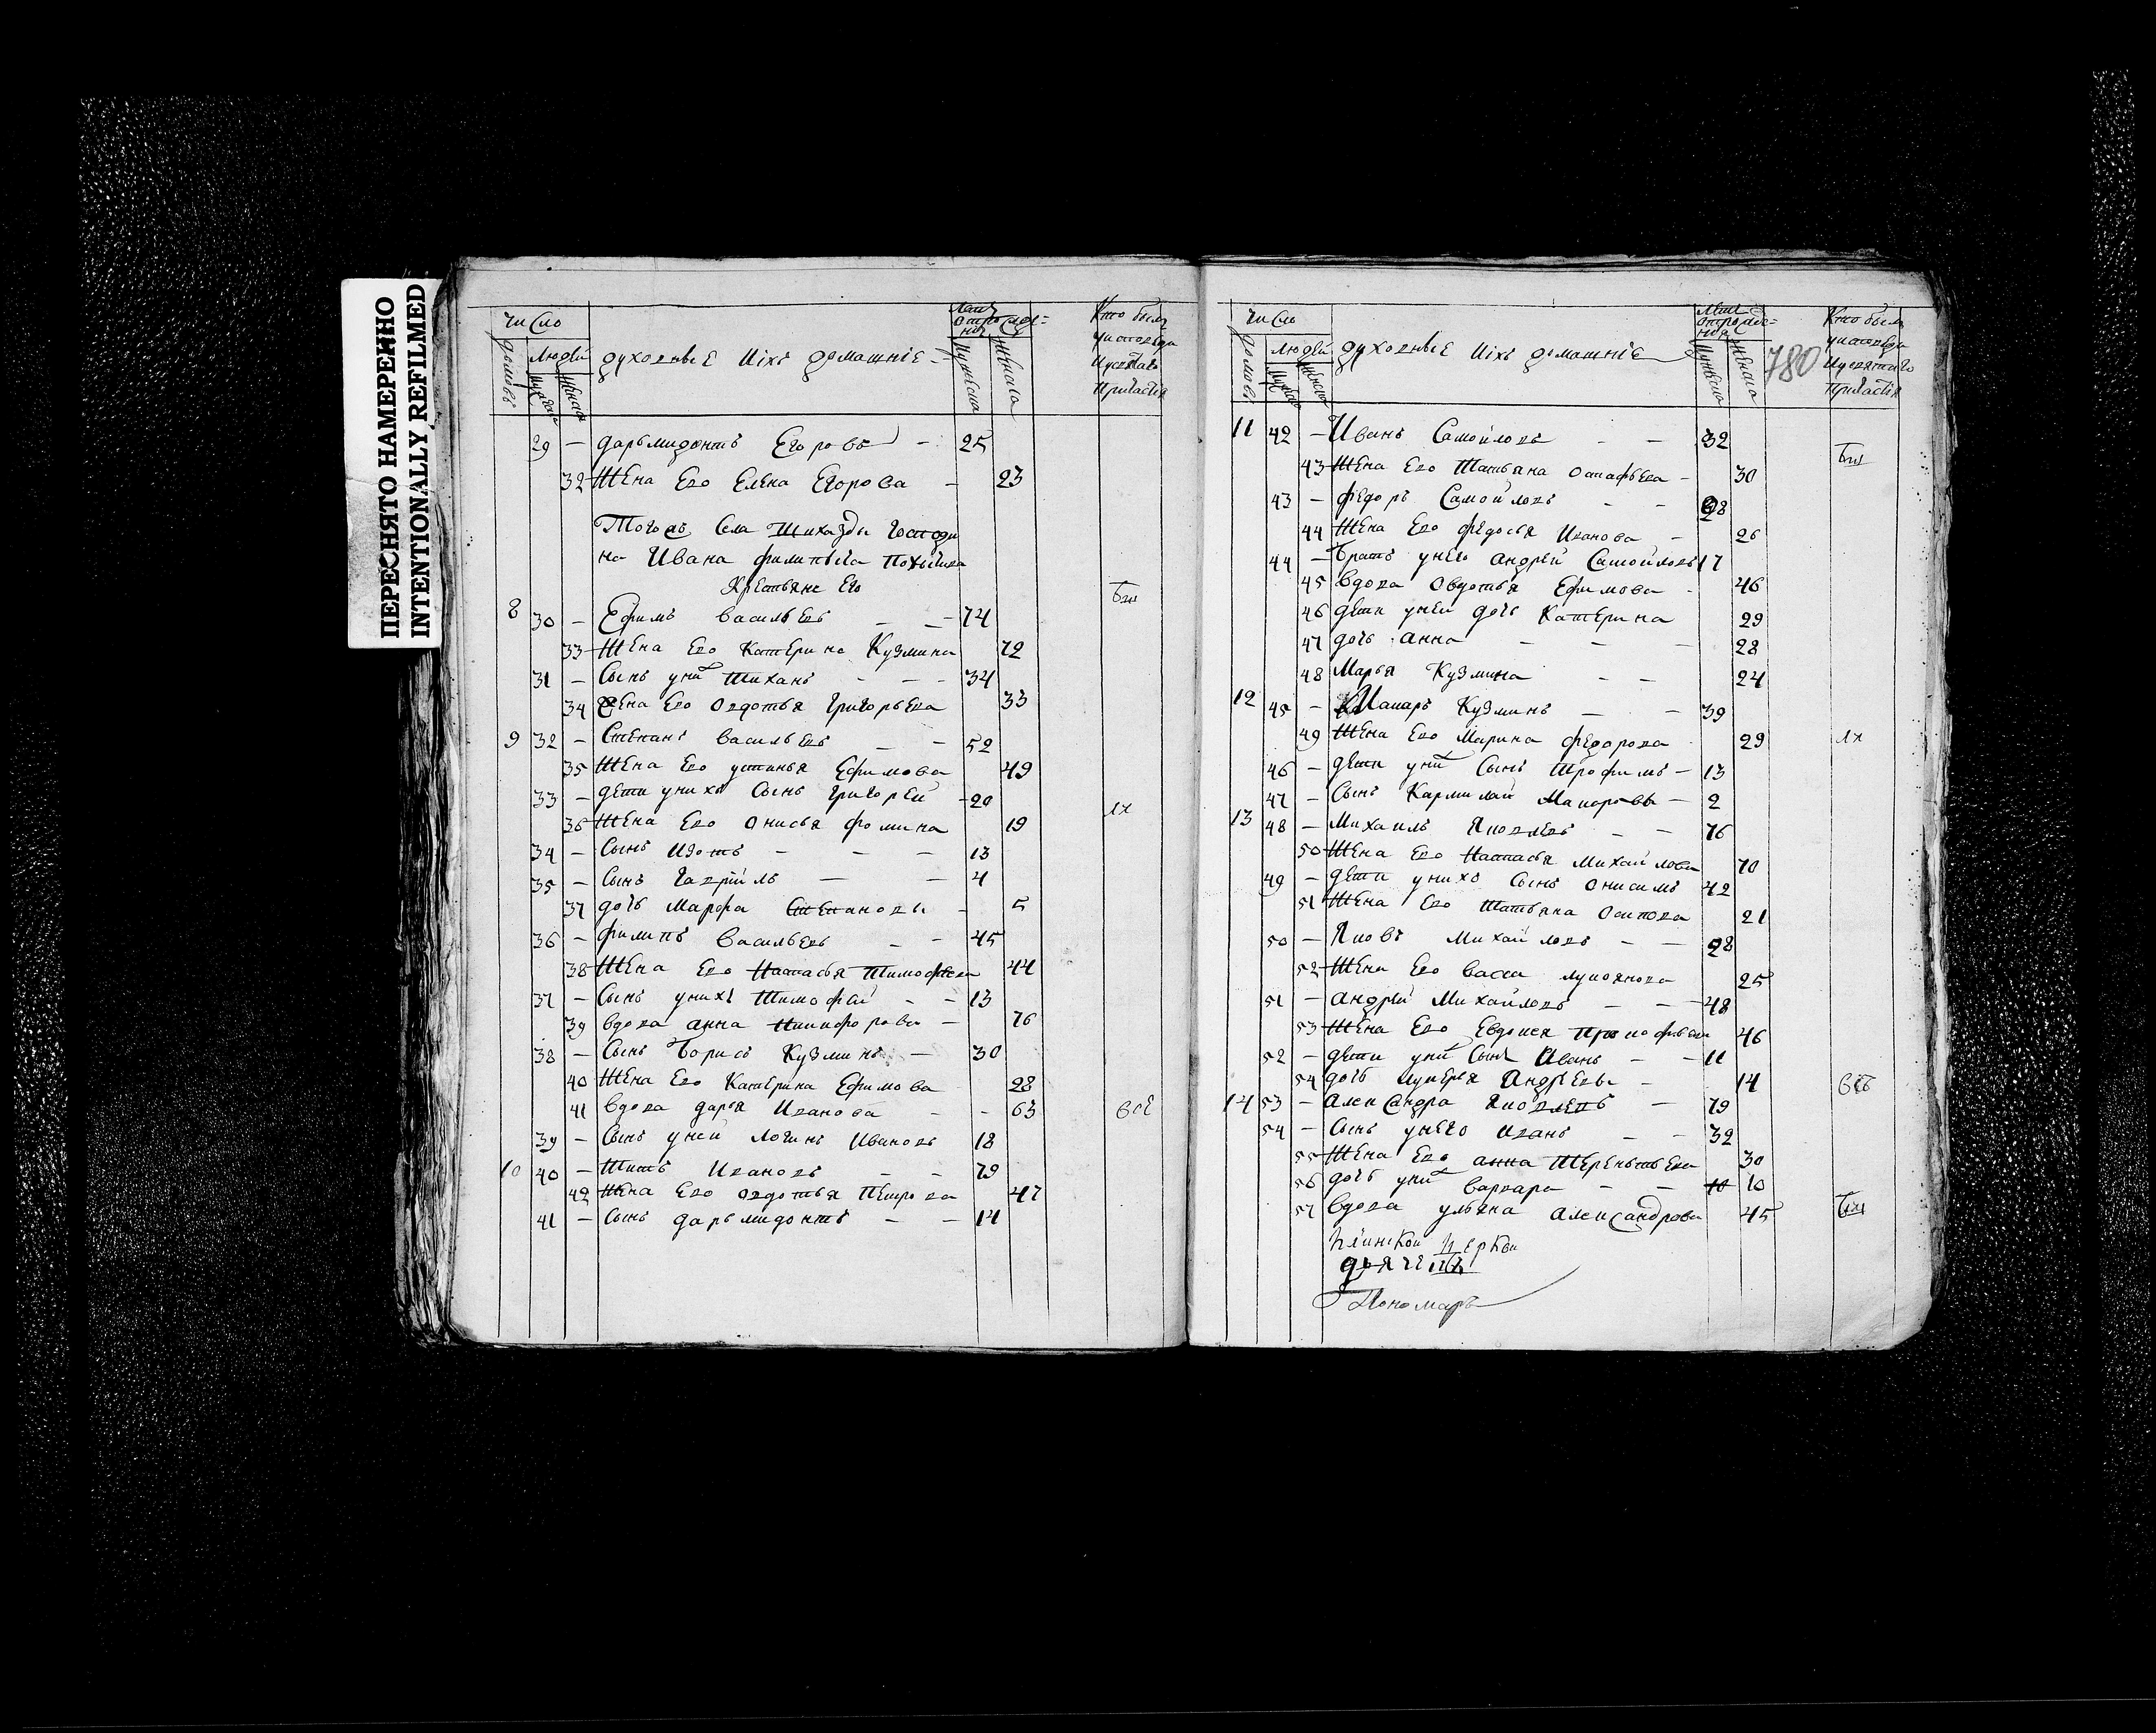 ПЕРЕСНЯТО НАМЕРЕННО
INTENTIONALLY REFILMED
Число
Людей
домовъ
духовные иіхъ домашніе
Кто былъ
уисповеди
исвятаго
Причастія
29 — дарьмидонтъ Егоровъ — 25
32 Жена Его Елена Егорова — 23
Тогожъ Села
на Ивана филипьича
Крестьяне Его
8 30 — Ефимъ васильевъ — — 74
33 Жена Его Катерина Кузмина 72
31 — Сынъ униⷯ Тиханъ — — — 34
34 Жена Его Овдотья григорьева 33
9 32 — Степанъ васильевъ — — 52
35 Жена Его устинья Ефимова 49
33 — дети унихъ Сынъ григорей — 20
36 Жена Его Онисья фомина 19
34 — Сынъ Изотъ — — — 13
35 — Сынъ гаврилъ — — 4
37 дочь Марфа Степановы — 5
36 — филипъ васильевъ — — 45
38 Жена Его Настасья Тимофѣева 44
37 — Сынъ унихъ Тимофей — — 13
39 вдова анна Никифорова — 76
38 — Сынъ Борисъ Кузминъ — 30
40 Жена Его Катерина Ефимова 28
41 вдова дарья Иванова — — 63
всѣ
39 — Сынъ уней логинъ Ивановъ 18
10 40 — Титъ Ивановъ — — 79
42 Жена Его овдотья Петрова 47
41 — Сынъ дарьмидонтъ — — 14
Число
Людей
домовъ
духовные иіхъ домашніе
780
Кто былъ
уисповеди
исвятаго
Причастія
11 42 — Иванъ Самойловъ — — 32
43 Жена Его Татьяна Остафьева — 30
43 — федоръ Самойловъ — — 28
44 Жена Его федосья Иванова — 26
44 — Братъ унего андрей Самойловъ 17
45 вдова Овдотья Ефимова — 46
46 дети уней дочь Катерина 29
47 дочь анна — — — 28
48 Марья Кузмина — — 24
12 45 — Макаръ Кузминъ — — 39
49 Жена Его Марина федорова 29
46 — дети униⷯ Сынъ Трофимъ — 13
47 — Сынъ Кармилай Макаровы — 2
13 48 — Михаилъ Яковлевъ — — 76
50 Жена Его Настасья Михайлова 70
49 — дети унихъ Сынъ Онисимъ 42
51 Жена Его Татьяна Осипова 21
50 — Яковъ Михайловъ — — 28
52 Жена Его васса лукоянова 25
51 — андрей Михайловъ — — — 48
53 Жена Его Евдокея Прокофьева 46
52 — дети униⷯ Сынъ Иванъ — — 11
54 дочь лукерья Андреевы — 14
всѣ
14 53 — александра Яковлевъ — 79
54 — Сынъ унего иванъ — — 32
55 Жена Его анна Терентьева 30
56 дочь униⷯ варвара — — 10 10
57 вдова ульяна александрова 45
церкви
Пономарь